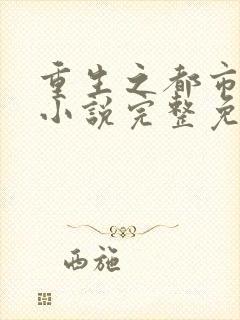 重生之都市
小说完整免
西施